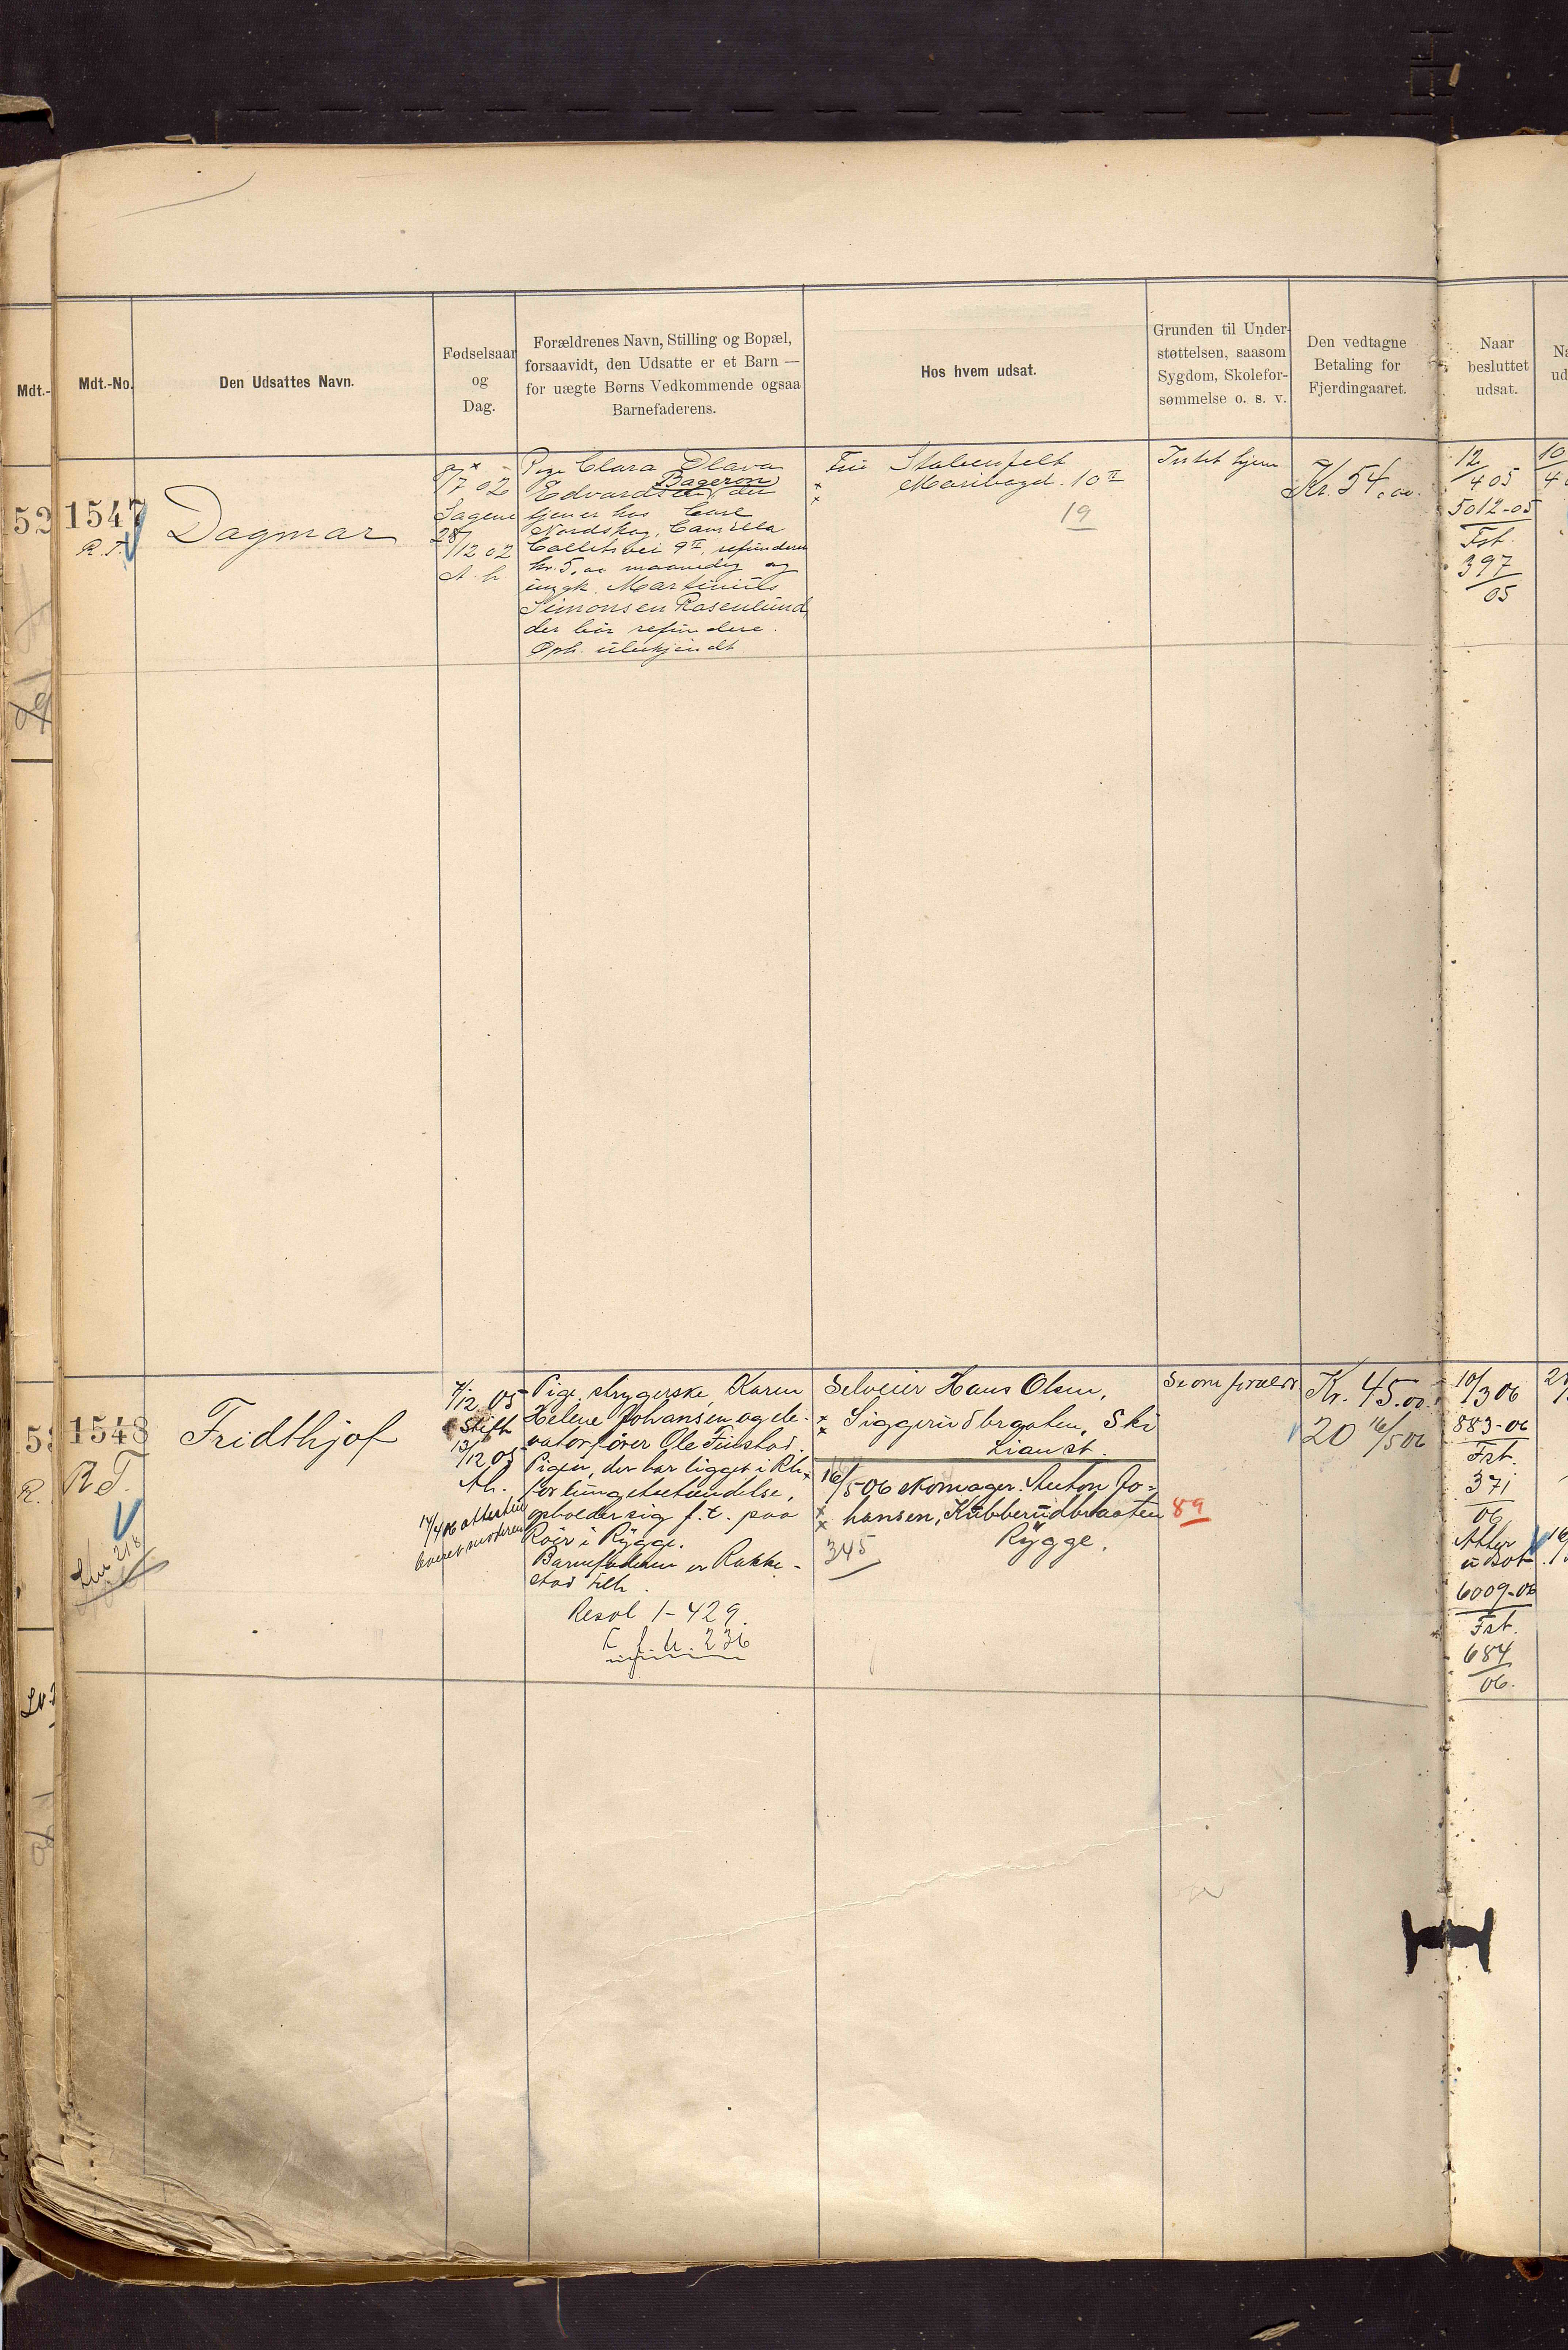 Mdt.-
Mdt.-No.
Den Udsattes Navn.
Fødselsaar
og
Dag.
Forældrenes Navn, Stilling og Bopæl,
forsaavidt, den Udsatte er et Barn —
for uægte Børns Vedkommende ogsaa
Barnefaderens.
Hos hvem udsat.
Grunden til Under-
støttelsen, saasom
Sygdom, Skolefor-
sømmelse o. s. v.
Den vedtagne
Betaling for
Fjerdingaaret.
Naar
besluttet
udsat.
52
1547
R. T.
Dagmar
9/7 02
Sagene
28/12 02
A. h.
Pige Clara Olava
Bageron
Edvardsen, der
tjener hos Carl
Nordskog, Camilla
Colletsvei 9 II, refunderer
kr. 5.00 maanedlig og
ungk. Martinius
Simonsen Rosenlund,
der bør refundere.
Oph. ubekjendt
Frue Stabenfelt
Maribogd. 10 II
19
Intet hjem
Kr. 54.00.
12/4 05
5012-05
Fst.
397/05
1548
R T.
Fridthjof
7/12 05
Stift
13/12 05
Ah.
Pige, strygerske, Karen
Helene Johansen og ele-
vatorfører Ole Finstad.
Pigen, der har ligget i Rh.
for lungebetændelse,
opholder sig f. t. paa
Roër i Rygge.
Barnefaderen er Rakke-
stad tilh.
Resol 1-429.
236
Selveier Hans Olsen,
Siggerudbraaten, Ski
Lian st.
16/5 06 skomager Anton Jo-
hansen, Kubberudbraaten
Rygge.
345
89
Se om foræld
Kr. 45.00.
20 16/5 06
10/3 06
883-06
Fst.
371
06
Atter
6009-06
Fst.
684
06.